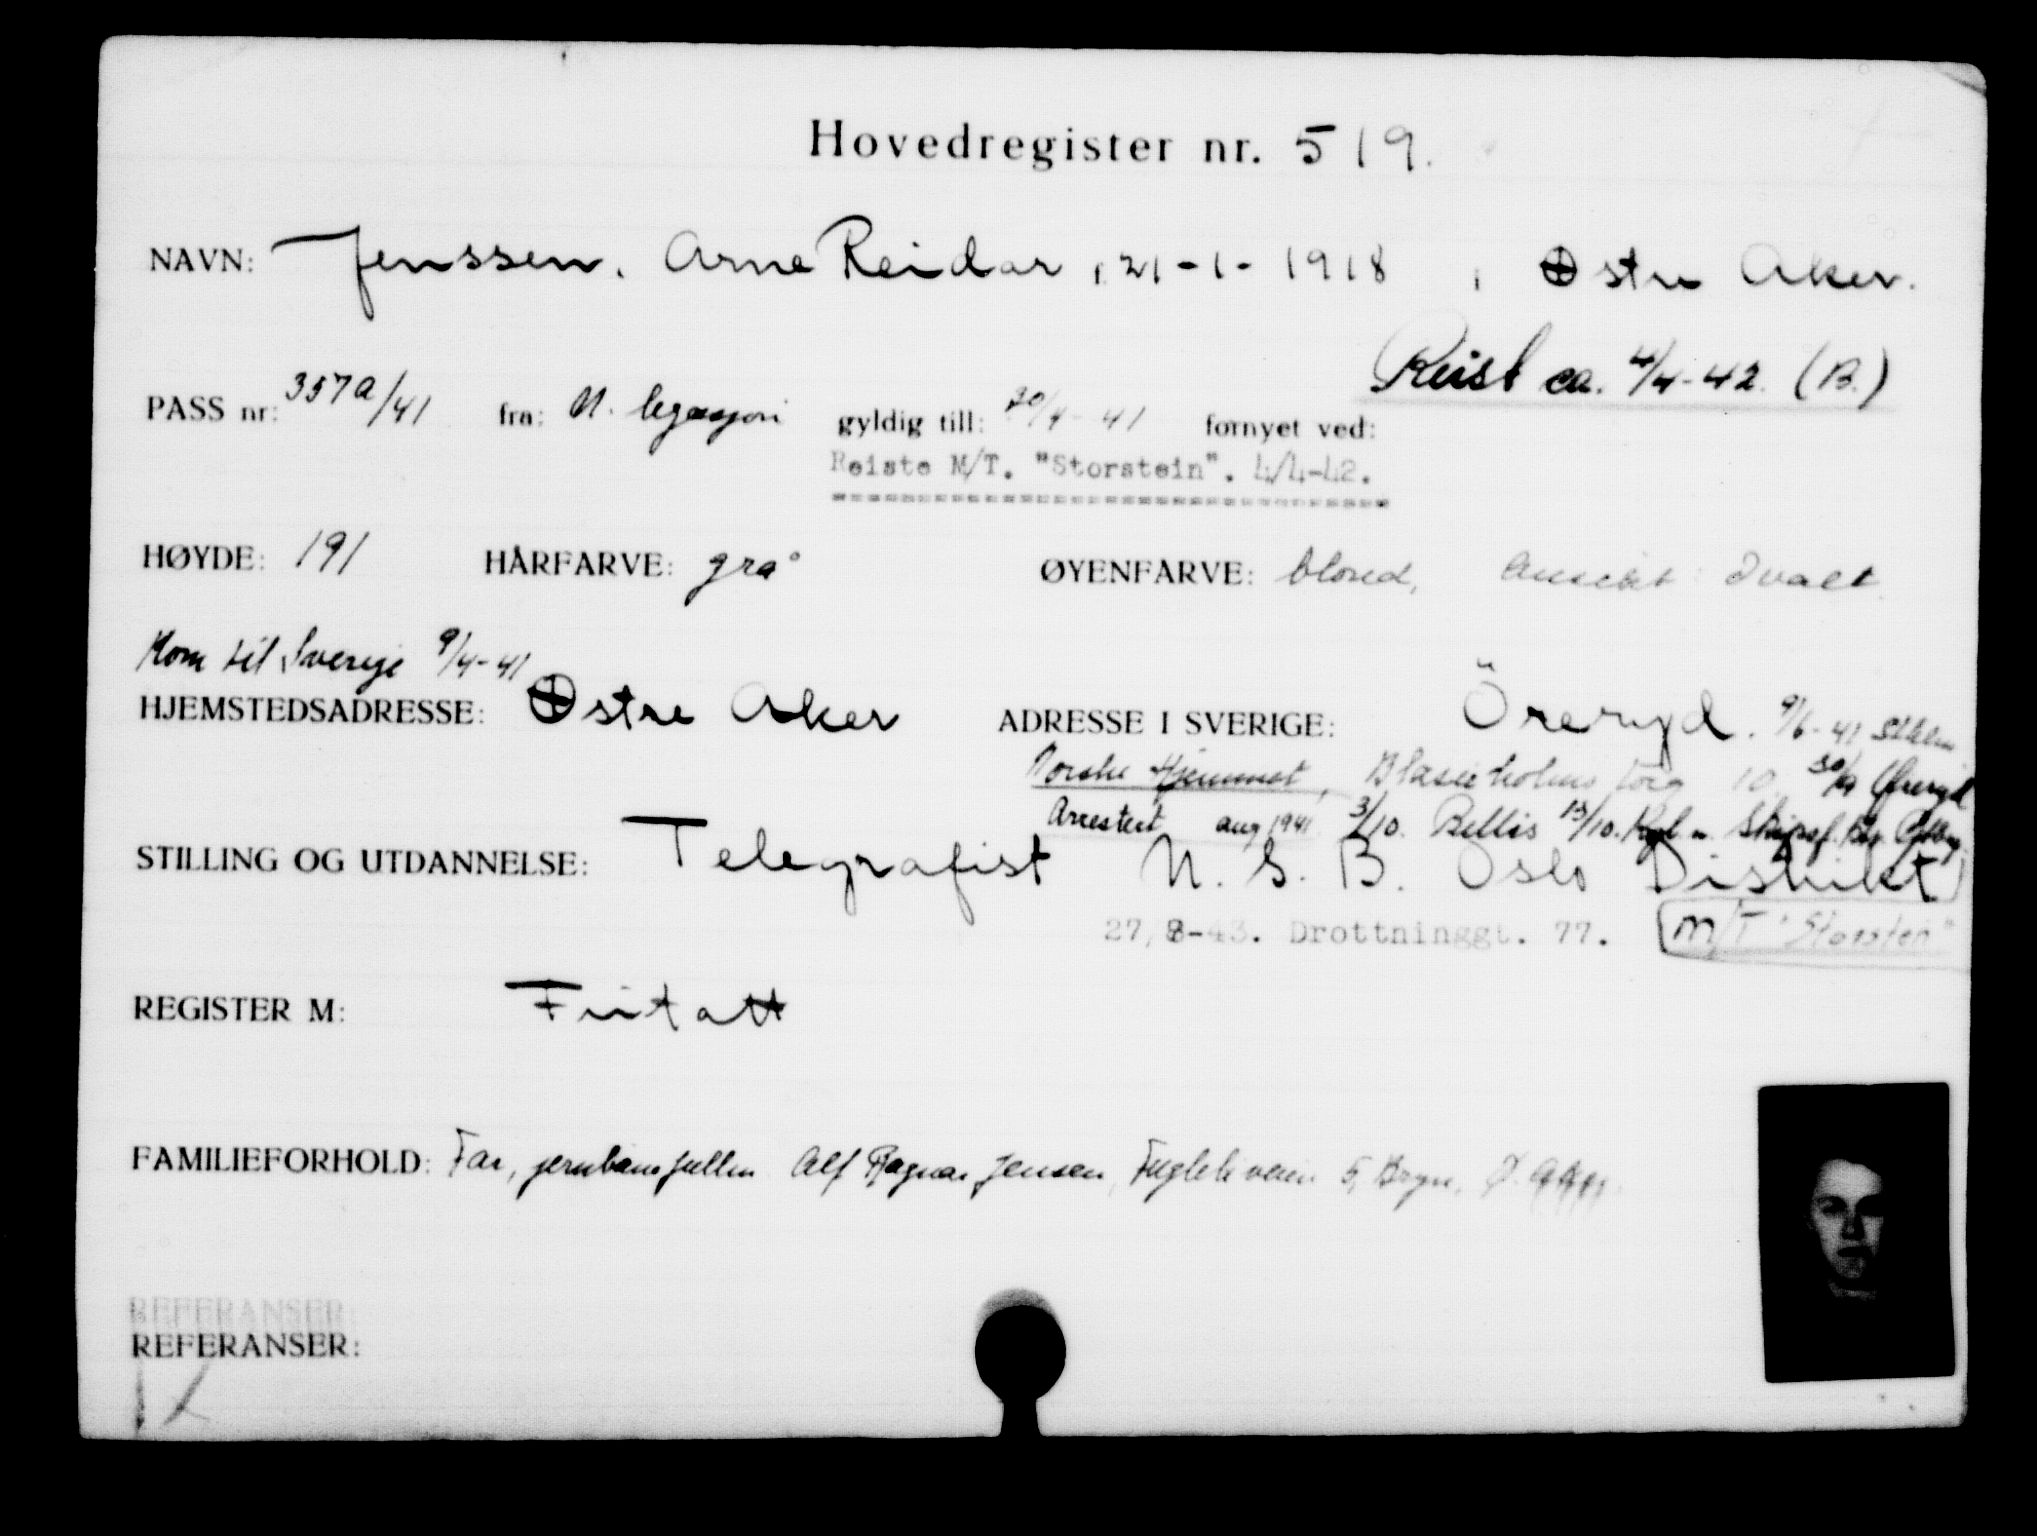 Hovedregister nr. 519.
NAVN: Jenssen. Arne Reidar, 21-1-1918, Østre Aker.
Reist ca. 4/4-42. (B.)
PASS nr: 357a/41 fra: N. legasjon gyldig till: 20/4-41 fornyet ved:
Reiste M/T. "Storstein". 4/4-42.
HØYDE: 191 HÅRFARVE: grå ØYENFARVE: blond, Ansikt: Ovalt.
Kom til Sverige 9/4-41
HJEMSTEDSADRESSE: Østre Aker ADRESSE I SVERIGE: Öreryd. 9/6-41 Sthlm
Norske Hjemmet, Blasieholms torg 10 30/9 Öreryd
Arrestert aug 1941 3/10. Rellis 13/10.
STILLING OG UTDANNELSE: Telegrafist N. S. B. Oslo Distrikt
27/8-43. Drottninggt. 77. M/T "Storsten"
REGISTER M: Fritatt
FAMILIEFORHOLD: Far, Alf Ragnar Jensen, Fugleliveien 5, Bryn, Ø. Aker.
REFERANSER:
REFERANSER: